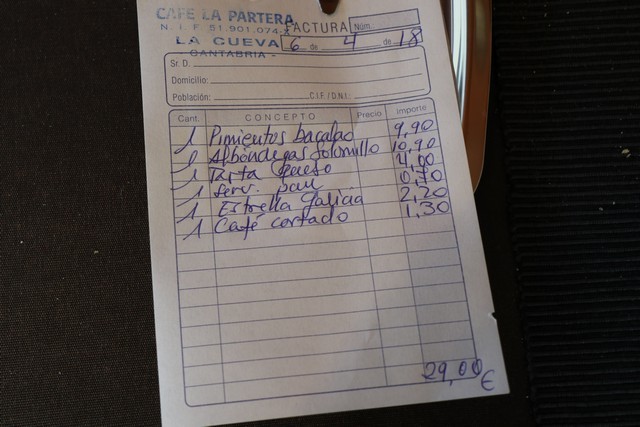 CAFE LA PARTERA
N. I. F. 51.901.074-
FACTURA Núm.
LA CUEVA 6 de 4 de 18
- CANTABRIA -
Sr. D.
Domicilio:
Población: C.I.F./D.N.I.:
Cant. CONCEPTO Precio Importe
1 Pimientos bacalao 9,90
1 Albóndegas Solomillo 10,90
1 Tarta Queso 4,00
1 Serv. pan 0,70
1 Estrella Galicia 2,20
1 Café cortado 1,30
29,00 €